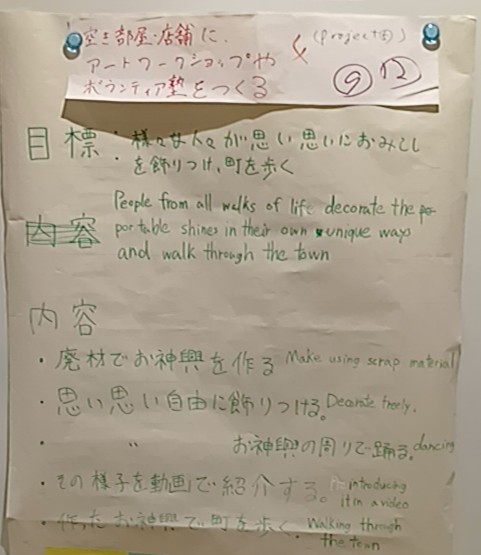 空き部屋・店舗に、
アートワークショップや
ボランティア塾をつくる
(project
⑨ ⑫
目標: 様々な人々が思い思いにおみこし
を飾りつけ、町を歩く
People from all walks of life decorate the po-
portable shines in their own unique ways
and walk through the town
内容
内容
・廃材でお神輿を作る Make using scrap material
・思い思い自由に飾りつける。Decorate freely.
・ 〃 お神輿の周りで踊る。dancing
・その様子を動画で紹介する。introducing
it in a video
・作ったお神輿で町を歩く. Walking through
the town